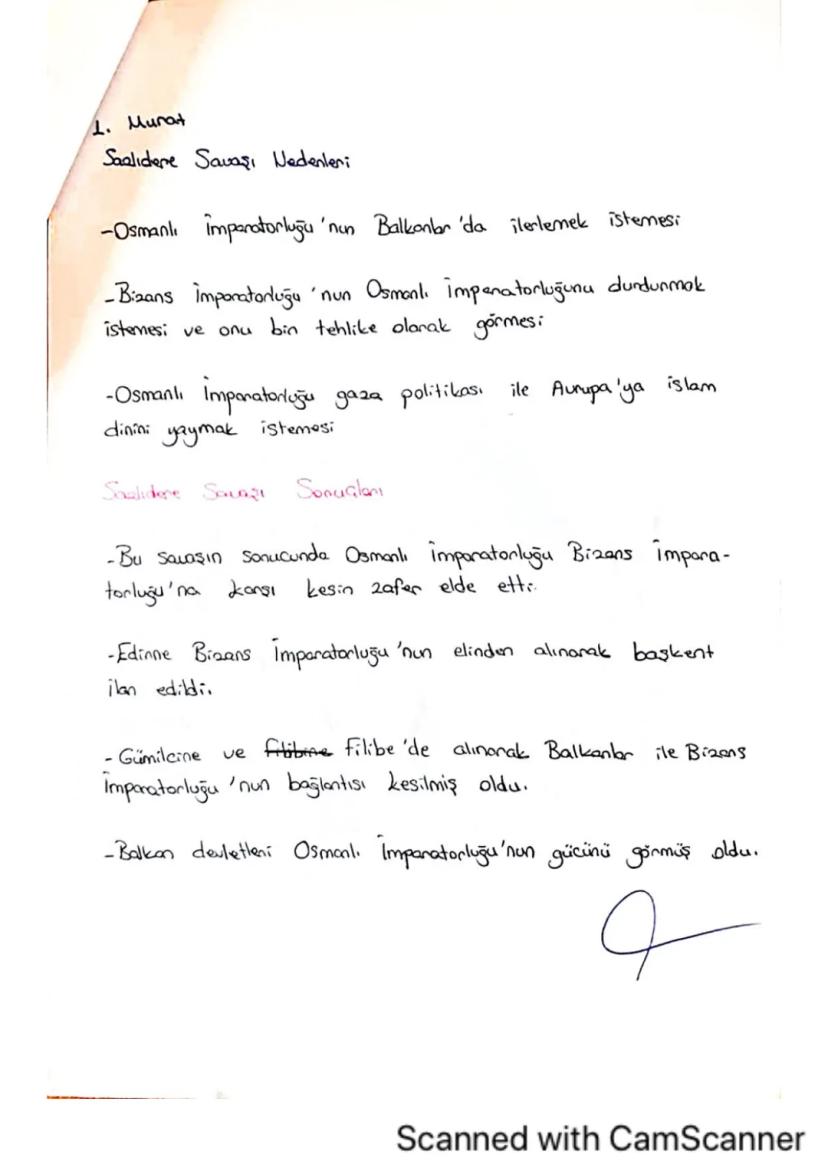 1. Murat
Sazlıdere Savaşı Nedenleri
-Osmanlı İmparatorluğu'nun Balkanlar'da ilerlemek istemesi
-Bizans İmparatorluğu'nun Osmanlı İmparatorluğunu durdurmak
istemesi ve onu bir tehlike olarak görmesi
-Osmanlı İmparatorluğu gaza politikası ile Avrupa'ya islam
dinini yaymak istemesi
Sazlıdere Savaşı Sonuçları
-Bu savaşın sonucunda Osmanlı İmparatorluğu Bizans İmpara-
torluğu'na karşı kesin zafer elde etti.
-Edirne Bizans İmparatorluğu'nun elinden alınarak başkent
ilan edildi.
-Gümilcine ve Filibe'de alınarak Balkanlar ile Bizans
İmparatorluğu'nun bağlantısı kesilmiş oldu.
-Balkan devletleri Osmanlı İmparatorluğu'nun gücünü görmüş oldu.
Scanned with CamScanner